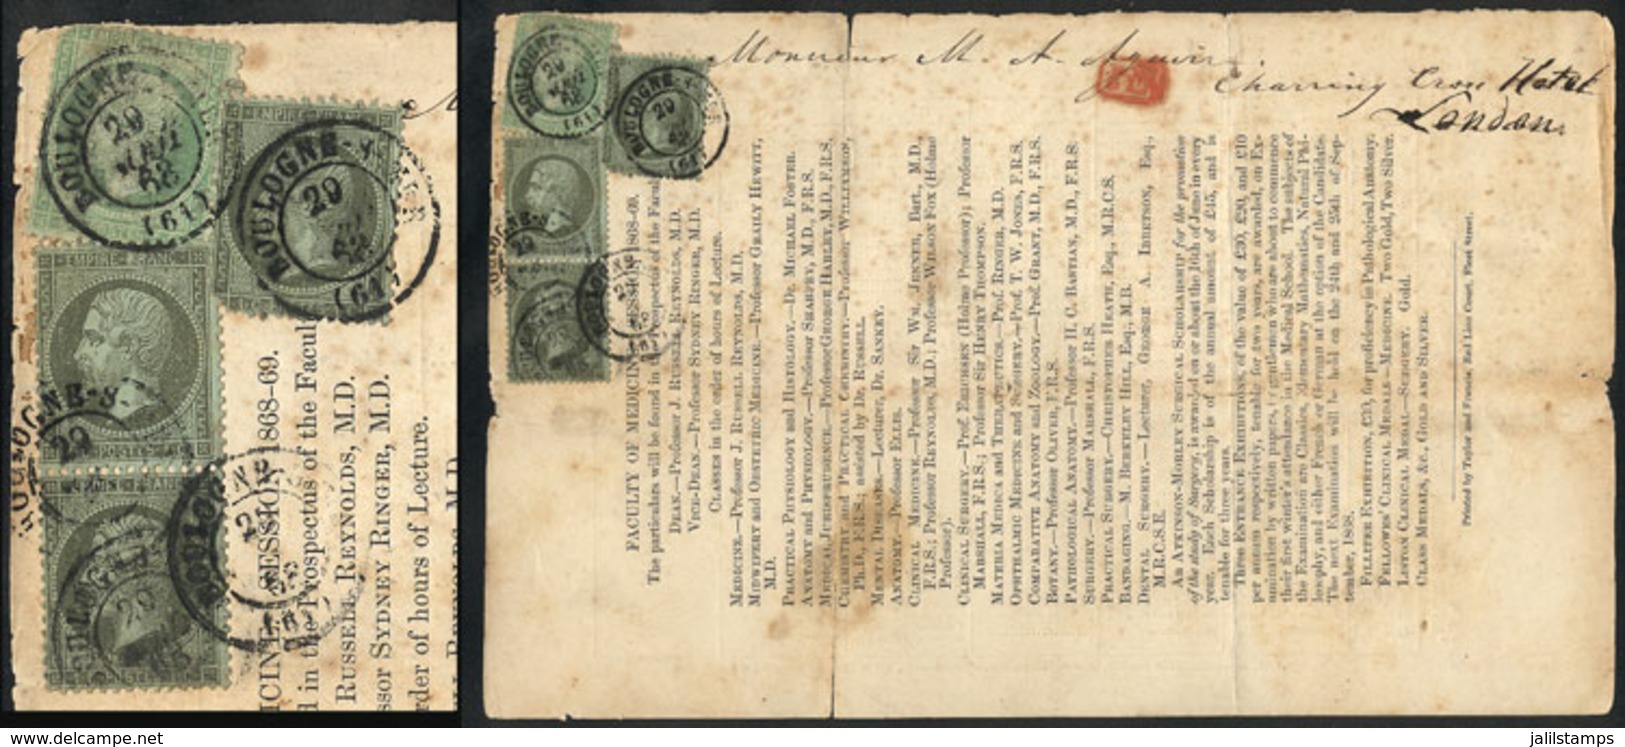 BOULOGNE
29
(61)
EMPIRE FRANC
BOULOGNE-S-MER
29
68
(61)
EMPIRE FRANC
POSTES
BOULOGNE-S-
29
BOULOGNE
29
BOULOGNE
29
68
ICINE. SESSION 1868-69.
d in the Prospectus of the Facul
RUSSELL REYNOLDS, M.D.
ssor SYDNEY RINGER, M.D.
rder of hours of Lecture.
Monsieur M. A. Aguirre
Charring Cross Hotel
London.
P.D.
BOULOGNE
29
(61)
BOULOGNE-S-MER
29
(61)
FACULTY OF MEDICINE. SESSION 1868-69.
The particulars will be found in the Prospectus of the Facul
DEAN.—Professor J. RUSSELL REYNOLDS, M.D.
VICE-DEAN.—Professor SYDNEY RINGER, M.D.
Classes in the order of hours of Lecture.
MEDICINE.—Professor J. RUSSELL REYNOLDS, M.D.
MIDWIFERY and OBSTETRIC MEDICINE.—Professor GRAILY HEWITT,
M.D.
PRACTICAL PHYSIOLOGY and HISTOLOGY.—Dr. MICHAEL FOSTER.
ANATOMY and PHYSIOLOGY.—Professor SHARPEY, M.D., F.R.S.
MEDICAL JURISPRUDENCE.—Professor GEORGE HARLEY, M.D., F.R.S.
CHEMISTRY and PRACTICAL CHEMISTRY.—Professor WILLIAMSON,
PH.D., F.R.S.; assisted by Dr. RUSSELL.
MENTAL DISEASES.—Lecturer, Dr. SANKEY.
ANATOMY.—Professor ELLIS.
CLINICAL MEDICINE.—Professor Sir WM. JENNER, Bart., M.D.,
F.R.S.; Professor REYNOLDS, M.D.; Professor WILSON FOX (Holme
Professor).
CLINICAL SURGERY.—Prof. ERICHSEN (Holme Professor); Professor
MARSHALL, F.R.S.; Professor Sir HENRY THOMPSON.
MATERIA MEDICA and THERAPEUTICS.—Prof. RINGER, M.D.
OPHTHALMIC MEDICINE and SURGERY.—Prof. T. W. JONES, F.R.S.
COMPARATIVE ANATOMY and ZOOLOGY.—Prof. GRANT, M.D., F.R.S.
BOTANY.—Professor OLIVER, F.R.S.
PATHOLOGICAL ANATOMY.—Professor H. C. BASTIAN, M.D., F.R.S.
SURGERY.—Professor MARSHALL, F.R.S.
PRACTICAL SURGERY.—CHRISTOPHER HEATH, Esq., M.R.C.S.
BANDAGING.—M. BERKELEY HILL, Esq., M.B.
DENTAL SURGERY.—Lecturer, GEORGE A. IBBETSON, Esq.,
M.R.C.S.E.
An ATKINSON-MORLEY SURGICAL SCHOLARSHIP for the promotion
of the study of Surgery, is awarded on or about the 16th of June in every
year. Each Scholarship is of the annual amount of £45, and is
tenable for three years.
Three ENTRANCE EXHIBITIONS, of the value of £30, £20, and £10
per annum respectively, tenable for two years, are awarded, on Ex-
amination by written papers, to gentlemen who are about to commence
their first winter's attendance in the Medical School. The subjects of
the Examination are Classics, Elementary Mathematics, Natural Phi-
losophy, and either French or German at the option of the Candidate.
The next Examination will be held on the 24th and 25th of Sep-
tember, 1868.
FILLITER EXHIBITION, £30, for proficiency in Pathological Anatomy.
FELLOWES' CLINICAL MEDALS.—MEDICINE. Two Gold, Two Silver.
LISTON CLINICAL MEDAL.—SURGERY. Gold.
CLASS MEDALS, &c., GOLD AND SILVER.
Printed by Taylor and Francis, Red Lion Court, Fleet Street.
www.delcampe.net
jalilstamps